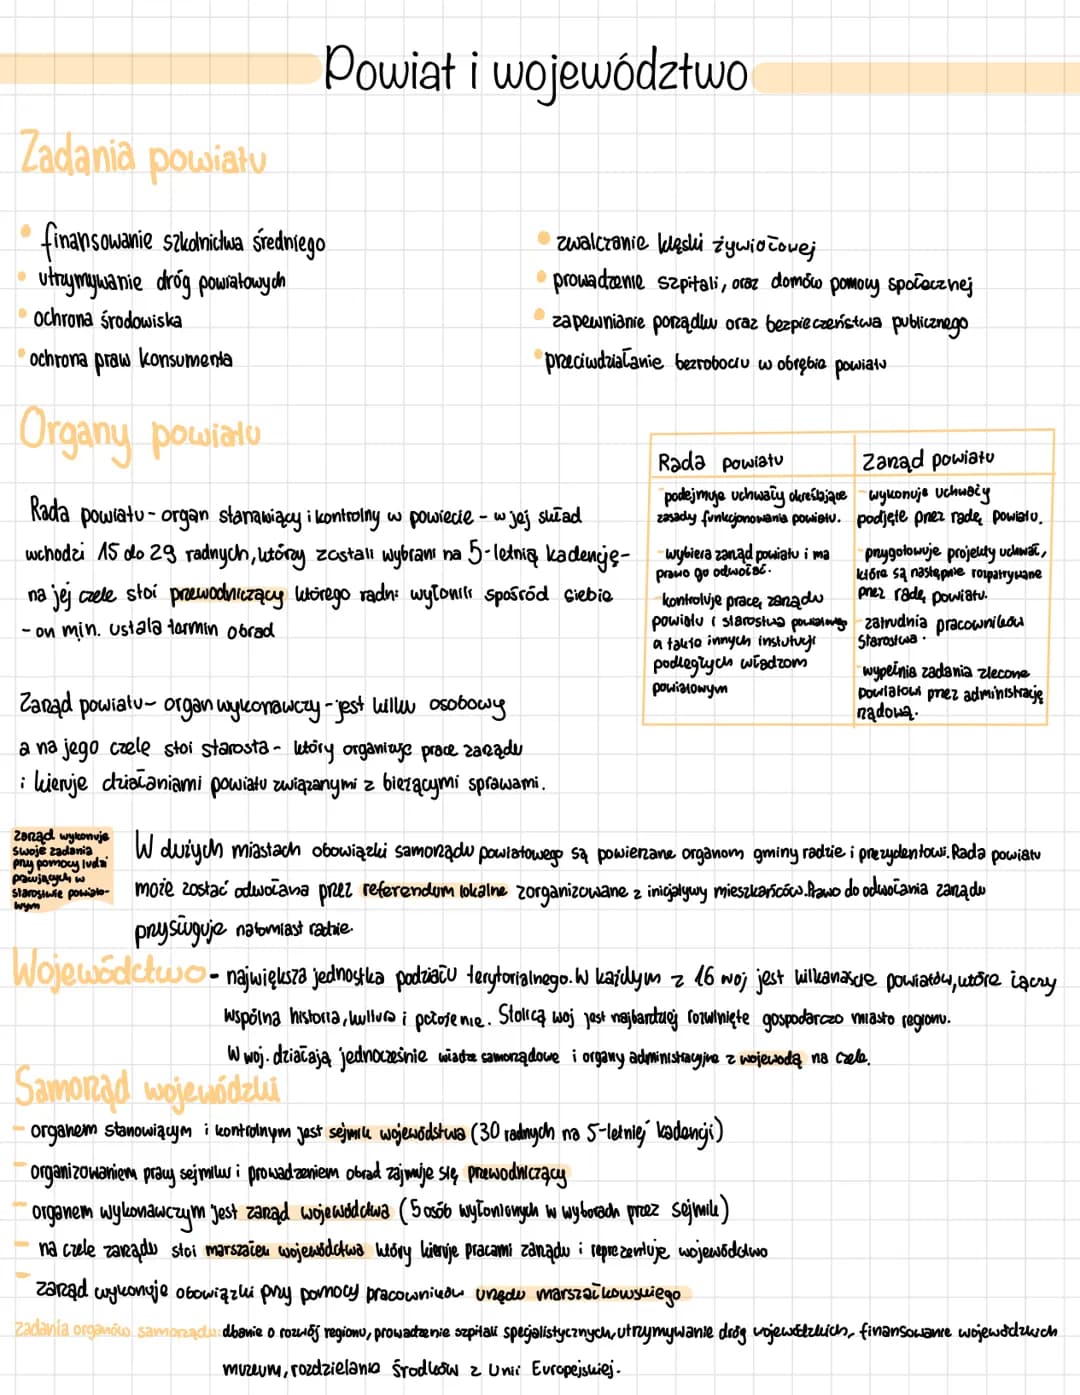 Powiat i województwo
Zadania powiatu
• finansowanie szkolnictwa średniego
• utrzymywanie dróg powiatowych
• ochrona środowiska
• ochrona praw konsumenta
• zwalczanie klęski żywiołowej
• prowadzenie szpitali, oraz domów pomocy społecznej
• zapewnianie porządku oraz bezpieczeństwa publicznego
• przeciwdziałanie bezrobociu w obrębie powiatu
Organy powiatu
Rada powiatu - organ stanawiący i kontrolny w powiecie - w jej skład
wchodzi 15 do 29 radnych, którzy zostali wybrani na 5-letnią kadencję-
na jej czele stoi przewodniczący którego radni wyłonili spośród siebie
- on min. ustala termin obrad
Zarząd powiatu- organ wykonawczy - jest kilku osobowy
a na jego czele stoi starosta - który organizuje prace zarządu
i kieruje działaniami powiatu związanymi z bieżącymi sprawami.
Rada powiatu
- podejmuje uchwały określające
zasady funkcjonowania powiatu.
- wybiera zarząd powiatu i ma
prawo go odwołać.
- kontroluje pracę zarządu
powiatu i starostwa powiatowego
a także innych instytucji
podległych władzom
powiatowym
Zarząd powiatu
- wykonuje uchwały
podjęte przez radę powiatu.
- przygotowuje projekty uchwał,
które są następnie rozpatrywane
przez radę powiatu.
- zatrudnia pracowników
Starostwa.
- wypełnia zadania zlecone
powiatowi przez administrację
rządową.
Zarząd wykonuje
swoje zadania
przy pomocy ludzi
w
starostwie powiato-
wym
W dużych miastach obowiązki samorządu powiatowego są powierzane organom gminy radzie i prezydentowi. Rada powiatu
może zostać odwołana przez referendum lokalne zorganizowane z inicjatywy mieszkańców. Prawo do odwołania zarządu
przysługuje natomiast radzie.
Województwo - największa jednostka podziału terytorialnego. W każdym z 16 woj jest kilkanaście powiatów, które łączy
wspólna historia, kultura i położenie. Stolicą woj jest najbardziej rozwinięte gospodarczo miasto regionu.
W woj. działają jednocześnie władze samorządowe i organy administracyjne z wojewodą na czele.
Samorząd wojewódzki
- organem stanowiącym i kontrolnym jest sejmik województwa (30 radnych na 5-letniej kadencji)
- organizowaniem pracy sejmiku i prowadzeniem obrad zajmuje się przewodniczący
- organem wykonawczym jest zarząd województwa (5 osób wyłonionych w wyborach przez sejmik)
- na czele zarządu stoi marszałek województwa który kieruje pracami zarządu i reprezentuje województwo
- zarząd wykonuje obowiązki przy pomocy pracowników urzędu marszałkowskiego
Zadania organów samorządu: dbanie o rozwój regionu, prowadzenie szpitali specjalistycznych, utrzymywanie dróg wojewódzkich, finansowanie wojewódzkich
muzeum, rozdzielania środków z Unii Europejskiej.